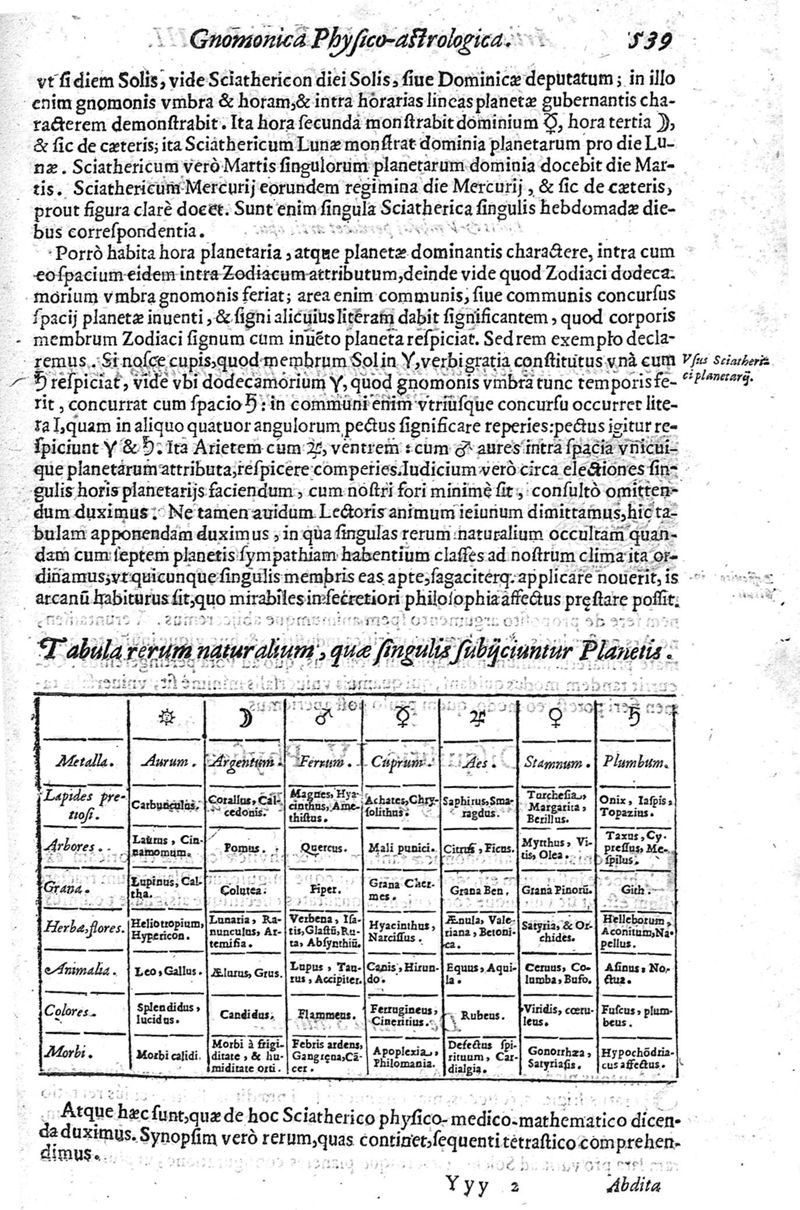 Gnomonica Phyſico-aſtrologica. 539
vt ſi diem Solis, vide Sciathericon diei Solis, ſiue Dominicæ deputatum; in illo
enim gnomonis vmbra & horam, & intra horarias lineas planetæ gubernantis cha-
racterem demonſtrabit. Ita hora ſecunda monſtrabit dominium ☿, hora tertia ☽,
& ſic de cæteris; ita Sciathericum Lunæ monſtrat dominia planetarum pro die Lu-
næ. Sciathericum verò Martis ſingulorum planetarum dominia docebit die Mar-
tis. Sciathericum Mercurij eorundem regimina die Mercurij, & ſic de cæteris,
prout figura clarè docet. Sunt enim ſingula Sciatherica ſingulis hebdomadæ die-
bus correſpondentia.
Porrò habita hora planetaria, atque planetæ dominantis charactere, intra cum
eo ſpacium eidem intra Zodiacum attributum, deinde vide quod Zodiaci dodeca-
morium vmbra gnomonis feriat; area enim communis, ſiue communis concurſus
ſpacij planetæ inuenti, & ſigni alicuius literam dabit ſignificantem, quod corporis
membrum Zodiaci ſignum cum inuẽto planeta reſpiciat. Sed rem exemplo decla-
remus. Si noſce cupis, quod membrum Sol in ♈, verbi gratia conſtitutus vnà cum
♄ reſpiciat, vide vbi dodecamorium ♈, quod gnomonis vmbra tunc temporis fe-
rit, concurrat cum ſpacio ♄: in communi enim vtriuſque concurſu occurret lite-
ra I, quam in aliquo quatuor angulorum pectus ſignificare reperies: pectus igitur re-
ſpiciunt ♈ & ♄. Ita Arietem cum ♃, ventrem: cum ♂ aures intra ſpacia vnicui-
que planetarum attributa, reſpicere comperies. Iudicium verò circa electiones ſin-
gulis horis planetarijs faciendum, cum noſtri fori minimè ſit, conſultò omitten-
dum duximus. Ne tamen auidum Lectoris animum ieiunium dimittamus, hic ta-
bulam apponendam duximus, in qua ſingulas rerum naturalium occultam quan-
dam cum ſeptem planetis ſympathiam habentium claſſes ad noſtrum clima ita or-
dinamus, vt quicunque ſingulis membris eas apte, ſagaciterq. applicare nouerit, is
arcanũ habiturus ſit, quo mirabiles in ſecretiori philoſophia affectus pręſtare poſſit.
Vſus Sciatheri-
ci planetarij.
Tabula rerum naturalium, quæ ſingulis ſubijciuntur Planetis.
☼ ☽ ♂ ☿ ♃ ♀ ♄
Metalla. Aurum. Argentum. Ferrum. Cuprum. Aes. Stamnum. Plumbum.
Lapides pre-
tioſi. Carbunculus. Corallus, Cal-
cedonis. Magnes, Hya-
cinthus, Ame-
thiſtus. Achates, Chry-
ſolithus. Saphirus, Sma-
ragdus. Turcheſia,
Margarita,
Berillus. Onix, Iaſpis,
Topazius.
Arbores. Laurus, Cin-
namomum. Pomus. Quercus. Mali punici. Citrus, Ficus. Myrthus, Vi-
tis, Olea. Taxus, Cy-
preſſus, Me-
ſpilus.
Grana. Lupinus, Cal-
tha. Colutea. Piper. Grana Cher-
mes. Grana Ben. Grana Pinorũ. Gith.
Herbæ, flores. Heliotropium,
Hypericon. Lunaria, Ra-
nunculus, Ar-
temiſia. Verbena, Iſa-
tis, Glaſtũ, Ru-
ta, Abſynthiũ. Hyacinthus,
Narciſſus. Ænula, Vale-
riana, Betoni-
ca. Satyria, & Or-
chides. Helleborum,
Aconitum, Na-
pellus.
Animalia. Leo, Gallus. Ælurus, Grus. Lupus, Tau-
rus, Accipiter. Canis, Hirun-
do. Equus, Aqui-
la. Ceruus, Co-
lumba, Bufo. Aſinus, No-
ctua.
Colores. Splendidus,
lucidus. Candidus. Flammeus. Ferrugineus,
Cineritius. Rubeus. Viridis, cœru-
leus. Fuſcus, plum-
beus.
Morbi. Morbi calidi. Morbi à frigi-
ditate, & hu-
miditate orti. Febris ardens,
Gangręna, Cã-
cer. Apoplexia,
Philomania. Defectus ſpi-
rituum, Car-
dialgia. Gonorrhæa,
Satyriaſis. Hypochõdria-
cus affectus.
Atque hæc ſunt, quæ de hoc Sciatherico phyſico-medico-mathematico dicen-
da duximus. Synopſim verò rerum, quas continet, ſequenti tetraſtico comprehen-
dimus.
Yyy 2 Abdita